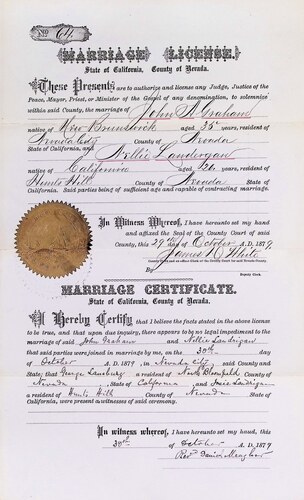 No. 64
MARRIAGE LICENSE.
State of California, County of Nevada.
These Presents are to authorize and license any Judge, Justice of the
Peace, Mayor, Priest, or Minister of the Gospel of any denomination, to solemnize
within said County, the marriage of John A Graham
native of New Brunswick aged 35 years, resident of
Nevada City County of Nevada
State of California, and Nellie Landergan
native of California aged 20 years, resident of
Hunts Hill County of Nevada
State of California. Said parties being of sufficient age and capable of contracting marriage.
In Witness Whereof, I have hereunto set my hand
and affixed the Seal of the County Court of said
County, this 29th day of October A.D. 1879
James H White
County Clerk
By
Deputy Clerk.
MARRIAGE CERTIFICATE.
State of California, County of Nevada.
I Hereby Certify that I believe the facts stated in the above license
to be true, and that upon due inquiry, there appears to be no legal impediment to the
marriage of said John Graham and Nellie Landrigan
that said parties were joined in marriage by me, on the 30th day
of October A.D. 1879, in Nevada City, said County and
State; that George Lansburg a resident of North Bloomfield County of
Nevada, State of California, and Landrigan
a resident of Hunts Hill County of Nevada State of
California, were present as witnesses of said ceremony.
In witness whereof, I have hereunto set my hand, this
30th of October A.D. 1879
Rev Meagher